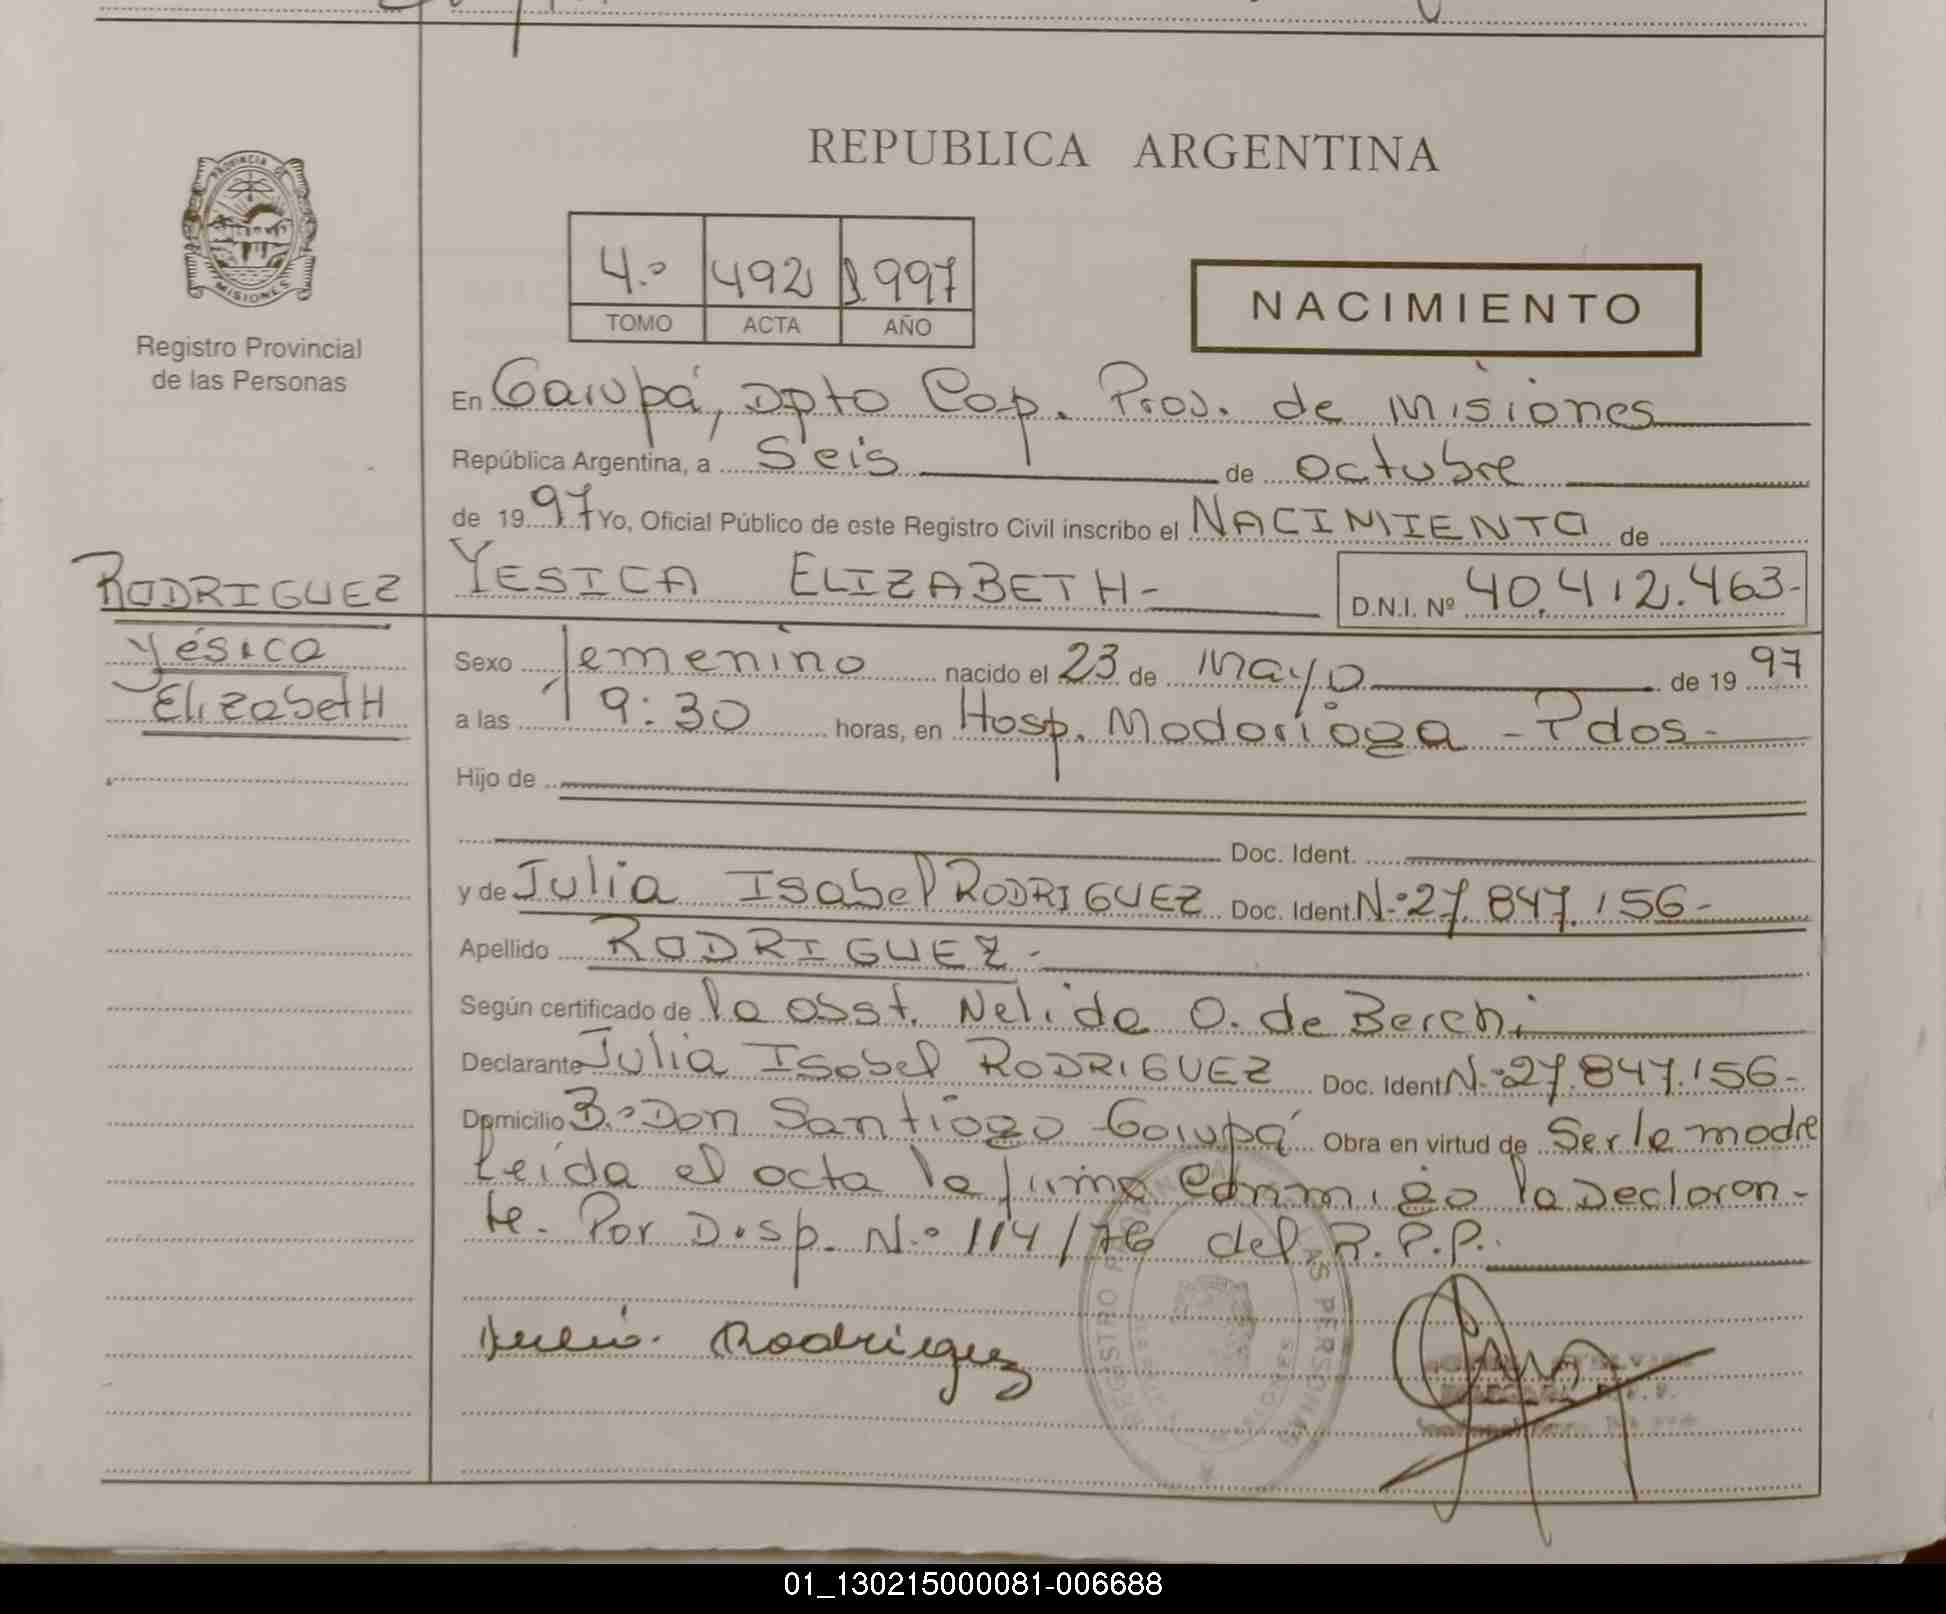 REPUBLICA ARGENTINA
PROVINCIA DE
MISIONES
Registro Provincial
de las Personas
4.º 492 1997
TOMO ACTA AÑO
NACIMIENTO
En Garupá, Dpto Cap. Prov. de Misiones
República Argentina, a Seis de octubre
de 1997 Yo, Oficial Público de este Registro Civil inscribo el NACIMIENTO de
RODRIGUEZ YESICA ELIZABETH- D.N.I. Nº 40.412.463-
Yésica
Elizabeth
Sexo femenino nacido el 23 de Mayo de 1997
a las 19:30 horas, en Hosp. Madariaga - Pdas-
Hijo de
Doc. Ident.
y de Julia Isabel RODRIGUEZ Doc. Ident. N.º 27.847.156-
Apellido RODRIGUEZ-
Según certificado de la obst. Nelida O. de Berchi
Declarante Julia Isabel RODRIGUEZ Doc. Ident N.º 27.847.156-
Domicilio B.º Don Santiago Garupá Obra en virtud de Ser la madre
Leída el acta la firma conmigo la Declaran-
te. Por Disp. N.º 114/76 del R.P.P.
Julia Rodriguez
REGISTRO PROVINCIAL DE LAS PERSONAS
MISIONES
01_130215000081-006688